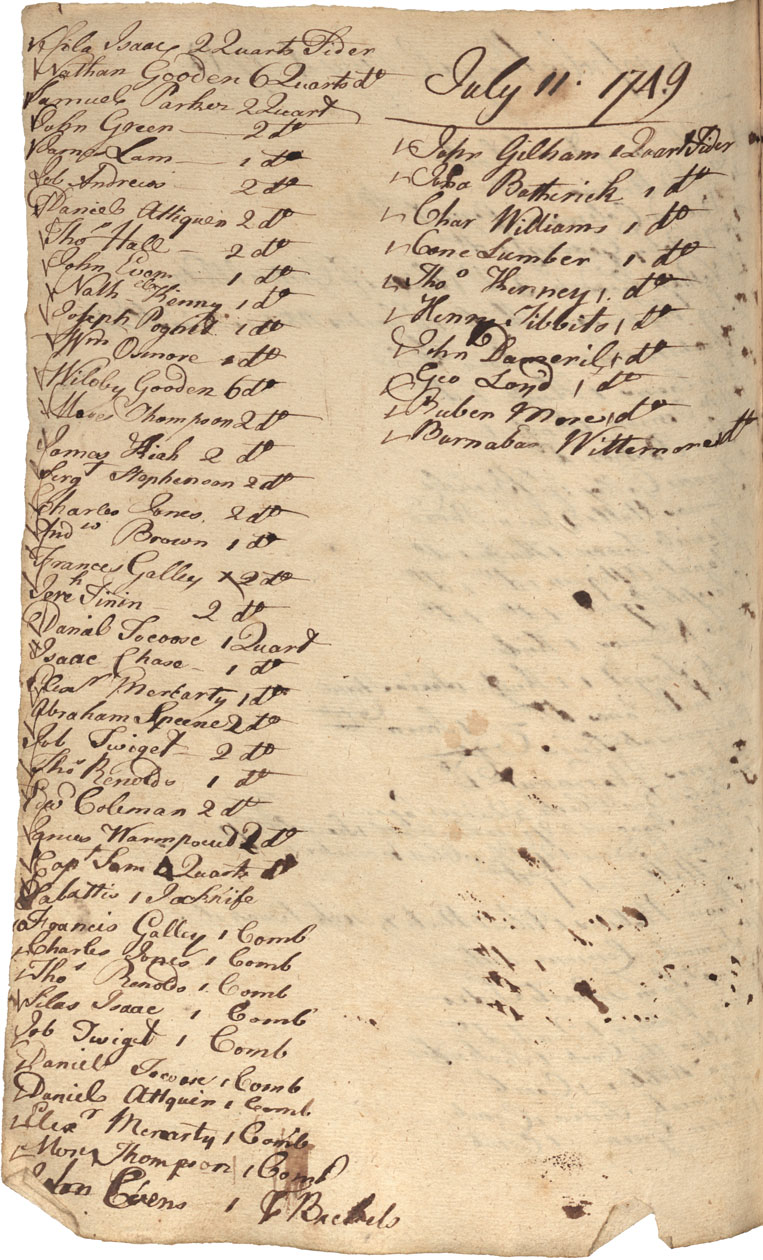 Sila Isaac 2 Quarts Sider
Nathan Gooden 6 Quarts do
Samuel Parker 2 Quart
John Green 2 do
James Lam 1 do
Job Andrews 2 do
Daniel Attquin 2 do
Thos Hall 2 do
John Evens 1 do
Nath Kenny 1 do
Joseph 1 do
Wm Osmore 1 do
Wiloby Gooden 6 do
Moses Thompson 2 do
James Kiah 2 do
Sergt Stephenson 2 do
Charles Jones 2 do
Andw Brown 1 do
Frances Galley 2 do
Jerh Finin 2 do
Danial Tocoose 1 Quart
Isaac Chase 1 do
Elexr Mercarty 1 do
Abraham Speene 2 do
Job Twiget 2 do
Thos Renolds 1 do
Edwd Coleman 2 do
James Warmpowed 2 do
Capt Sam Quarts
Sabattis 1 Jacknife
Francis Galley 1 Comb
Charles Jones 1 Comb
Thos Renolds 1 Comb
Silas Isaac 1 Comb
Job Twiget 1 Comb
Daniel Tocoose 1 Comb
Daniel Attquin 1 Comb
Elexr Mercarty 1 Comb
Moses Thompson 1 Comb
John Evens 1 Buckels
July 11. 1749
John Gilham 1 Quart Sider
John Botherick 1 do
Char Williams 1 do
Cone Lumber 1 do
Tho Kenney 1 do
Henry Tibbits 1 do
John Dameril 1 do
Geo Lord 1 do
Ruben More 1 do
Barnabas Wittemore do